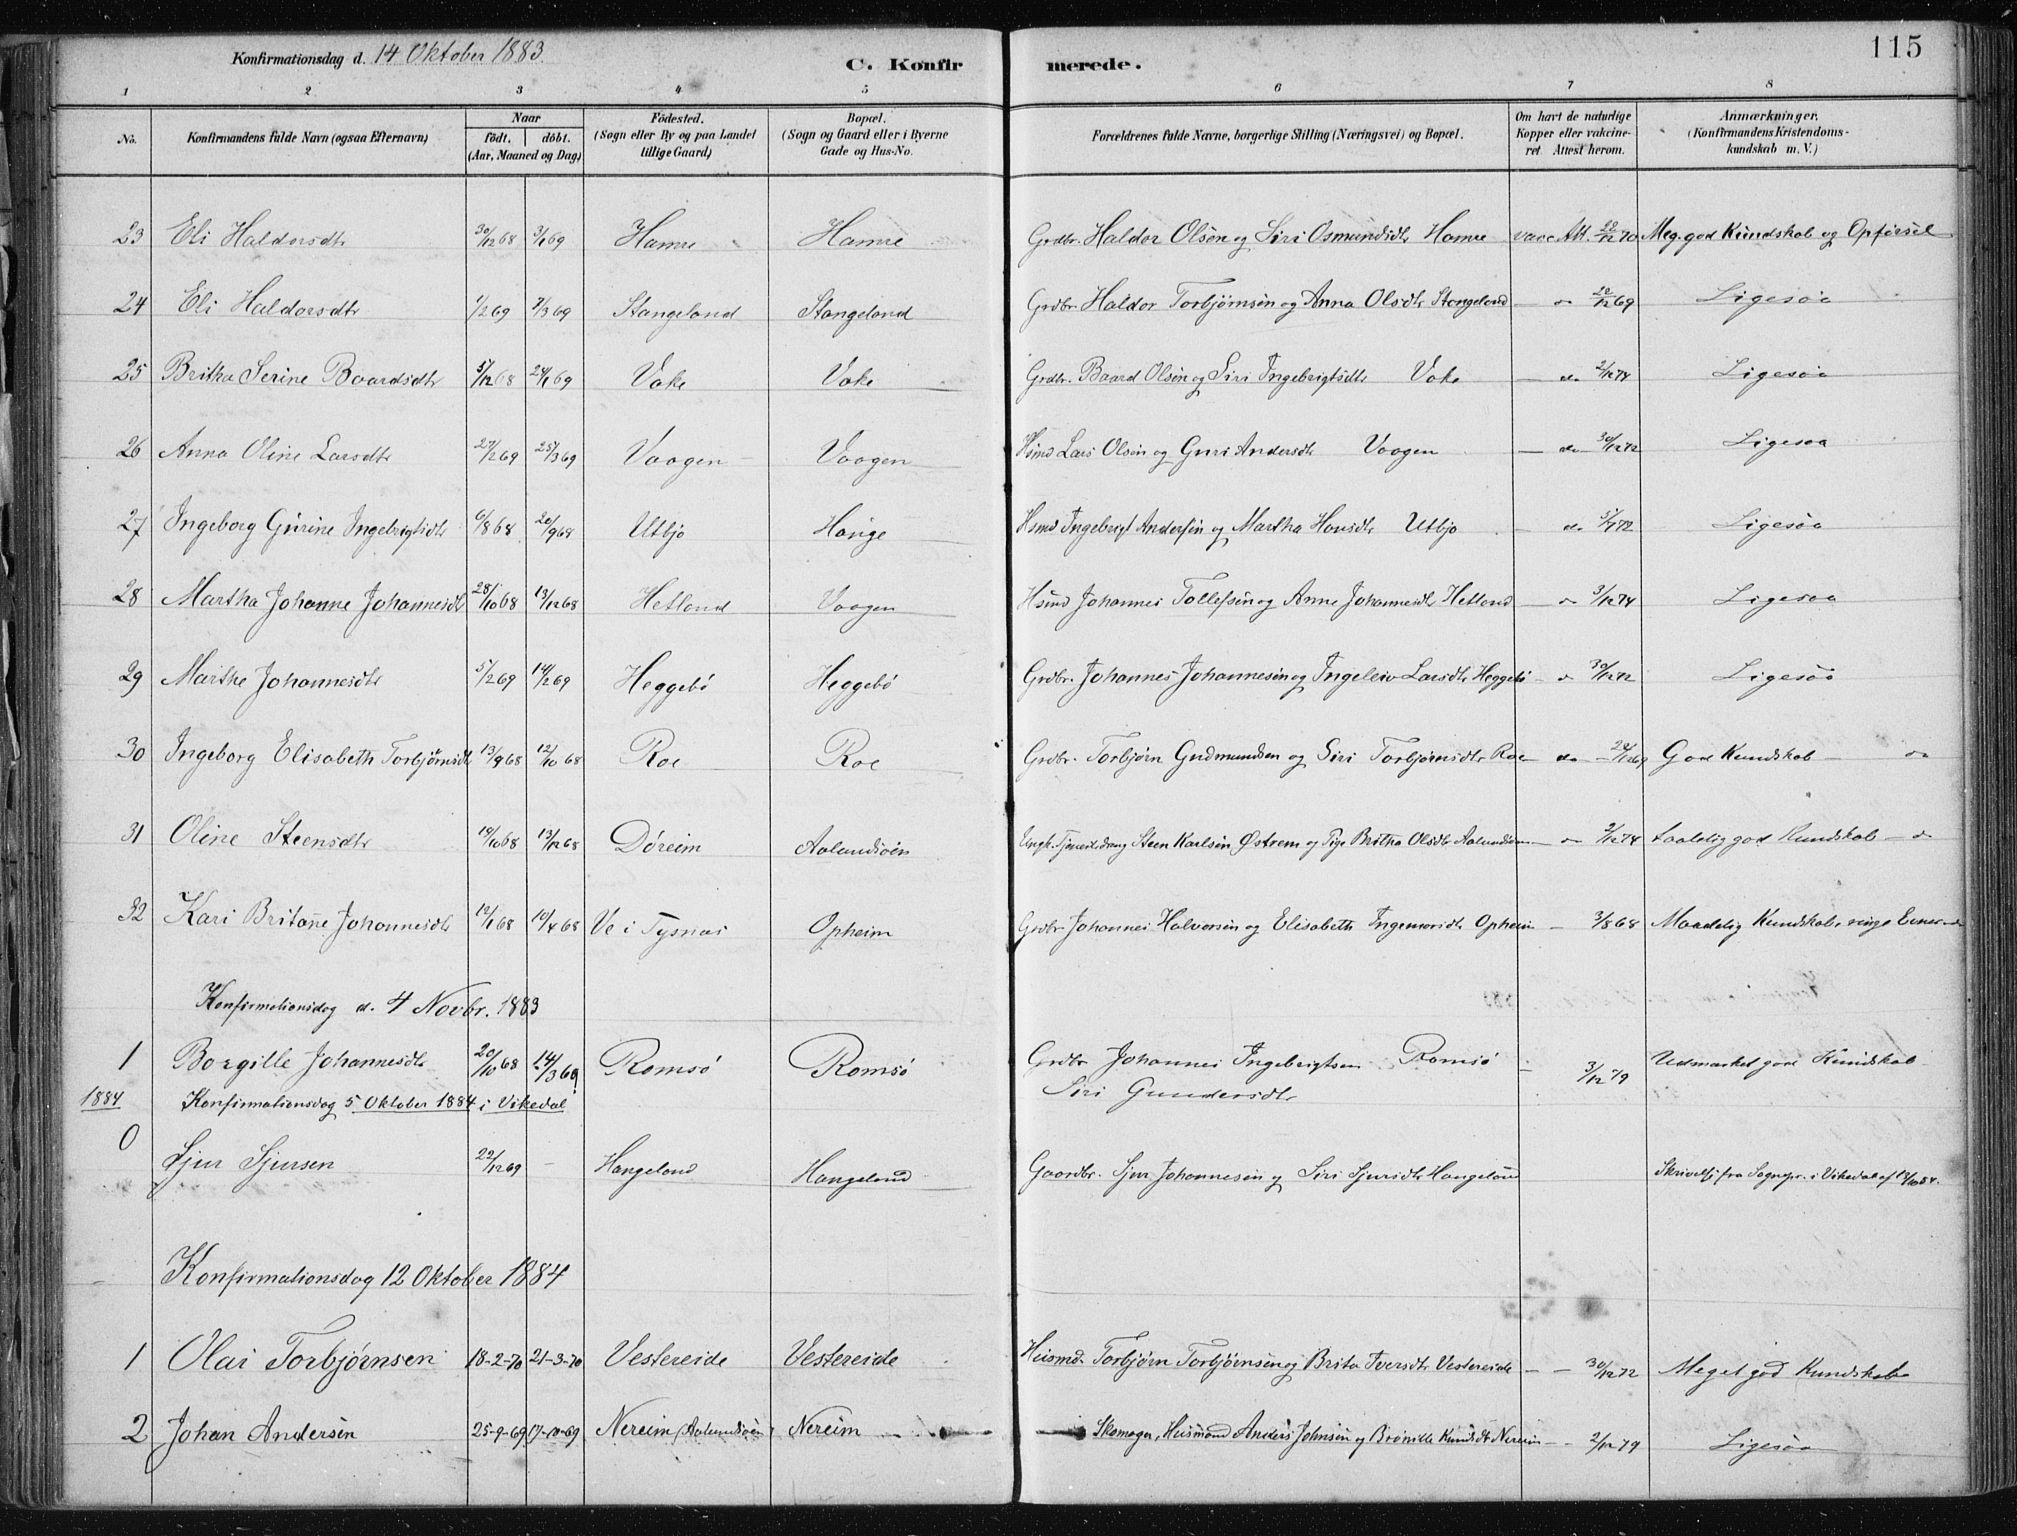 115
Konfirmationsdag d. 14 Oktober 1883.
C. Konfirmerede.
1 2 3 4 5 6 7 8
No. Konfirmandens fulde Navn (ogsaa Efternavn) Naar født. døbt. (Aar, Maaned og Dag) Fødested. (Sogn eller By og paa Landet tillige Gaard) Bopæl. (Sogn og Gaard eller i Byerne Gade og Hus-No. Forældrenes fulde Navne, borgerlige Stilling (Næringsvei) og Bopæl. Om havt de naturlige Kopper eller vaccineret. Attest herom. Anmærkninger. (Konfirmandens Kristendomskundskab m. V.)
23 Eli Haldorsdtr 30/12 68 3/1 69 Hamre Hamre Grdbr. Haldor Olsen og Siri Osmundsdtr Hamre vacc. Att. 22/12 70 Meg. god Kundskab og Opførsel
24 Eli Haldorsdtr 1/2 69 7/3 69 Stangeland Stangeland Grdbr. Haldor Torbjørnsen og Anna Olsdtr Stangeland — " 22/12 69 Ligesaa
25 Britha Serine Baardsdtr 5/12 68 24/1 69 Vake Vake Grdbr. Baard Olsen og Siri Ingebrigtsdtr Vake — do 2/12 74 Ligesaa
26 Anna Oline Larsdtr 27/2 69 25/3 69 Vaagen Vaagen Hsmd Lars Olsen og Guri Andersdtr Vaagen — do 30/12 72 Ligesaa
27 Ingeborg Gurine Ingebrigtsdtr 6/8 68 20/9 68 Utbjo Hauge Hsmd Ingebrigt Andersen og Martha Hansdtr Utbjo — do 5/7 72 Ligesaa
28 Martha Johanne Johannesdt 28/10 68 13/12 68 Hetland Vaagen Hsmd Johannes Tollefsen og Anne Johannesdtr Hetland — " 3/12 74 Ligesaa
29 Marthe Johannesdtr 5/2 69 14/2 69 Heggebø Heggebø Grdbr. Johannes Johannesen og Ingeleiv Larsdtr Heggebø — " 30/12 72 Ligesaa
30 Ingeborg Elisabeth Torbjørnsdt 13/9 68 12/10 68 Roe Roe Grdbr. Torbjørn Gudmundsen og Siri Torbjørnsdtr Roe — do — 22/12 69 God Kundskab — "
31 Oline Steensdtr 19/10 68 13/12 68 Døreim Aalundsøen Ungk. Tjenestedreng Steen Karlsen Østrem og Pige Britha Olsdtr Aalundsøen — " 2/12 74 taalelig god Kundskab — "
32 Kari Britane Johannesdtr 12/1 68 10/4 68 Ve i Tysnæs Opheim Grdbr Johannes Halvorsen og Elisabeth Ingemarsdtr Opheim — 3/8 68 Maadelig Kundskab, ringe Evner
Konfirmationsdag d. 4 Novbr. 1883
1 Borgille Johannesdtr 20/10 68 14/3 69 Romsø Romsø Grdbr Johannes Ingebrigtsen Romsø
Siri Gundersdtr — 3/12 79 Udmærket god Kundskab
1884 Konfirmationsdag 5 Oktober 1884 i Vikedal
0 Sjur Sjursen 22/12 69 — Hangeland Hangeland Gaardbr. Sjur Johannesen og Siri Sjursdtr Hangeland Skrivelse fra Sognepr. i Vikedal af 13/10 84.
Konfirmationsdag 12 Oktober 1884
1 Olai Torbjørnsen 18-2-70 21-3-70 Vestereide Vestereide Huismd. Torbjørn Torbjørnsen og Brita Iversdtr Vestereide — — 30/12 72 Meget god Kundskab
2 Johan Andersen 25-9-69 17-10-69 Nereim (Aalundsøen) Nereim Skomager, Husmand Anders Johnsen og Brønille Knudsdt Nereim — 2/12 79 Ligesaa